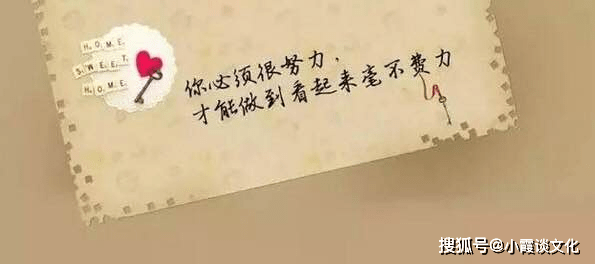 HOME
SWEET
HOME
你必须很努力,
才能做到看起来毫不费力
搜狐号@小霞谈文化